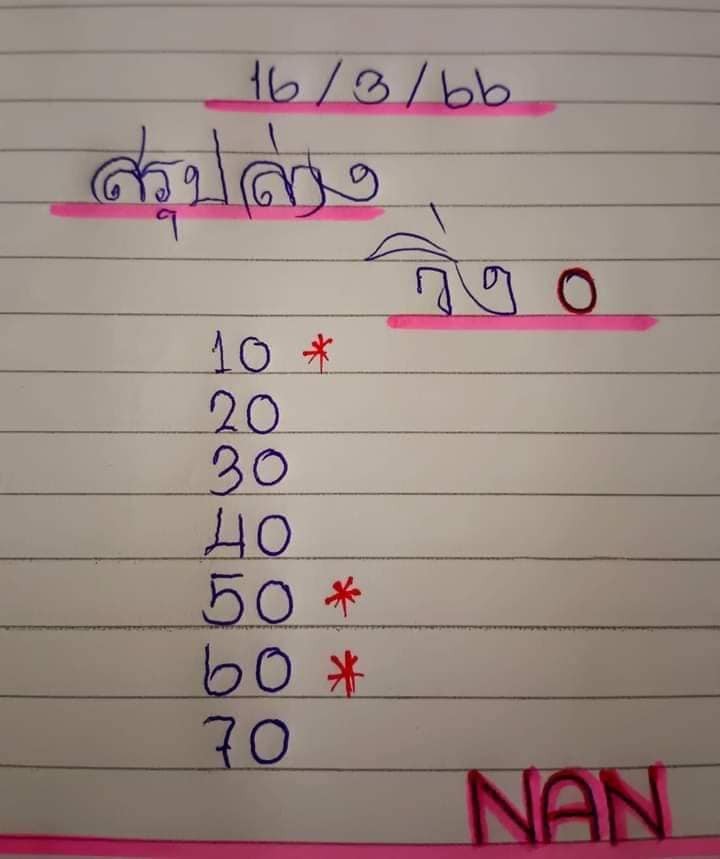 16/3/66
สรุปล่าง
วิ่ง 0
10 *
20
30
40
50 *
60 *
70
NAN